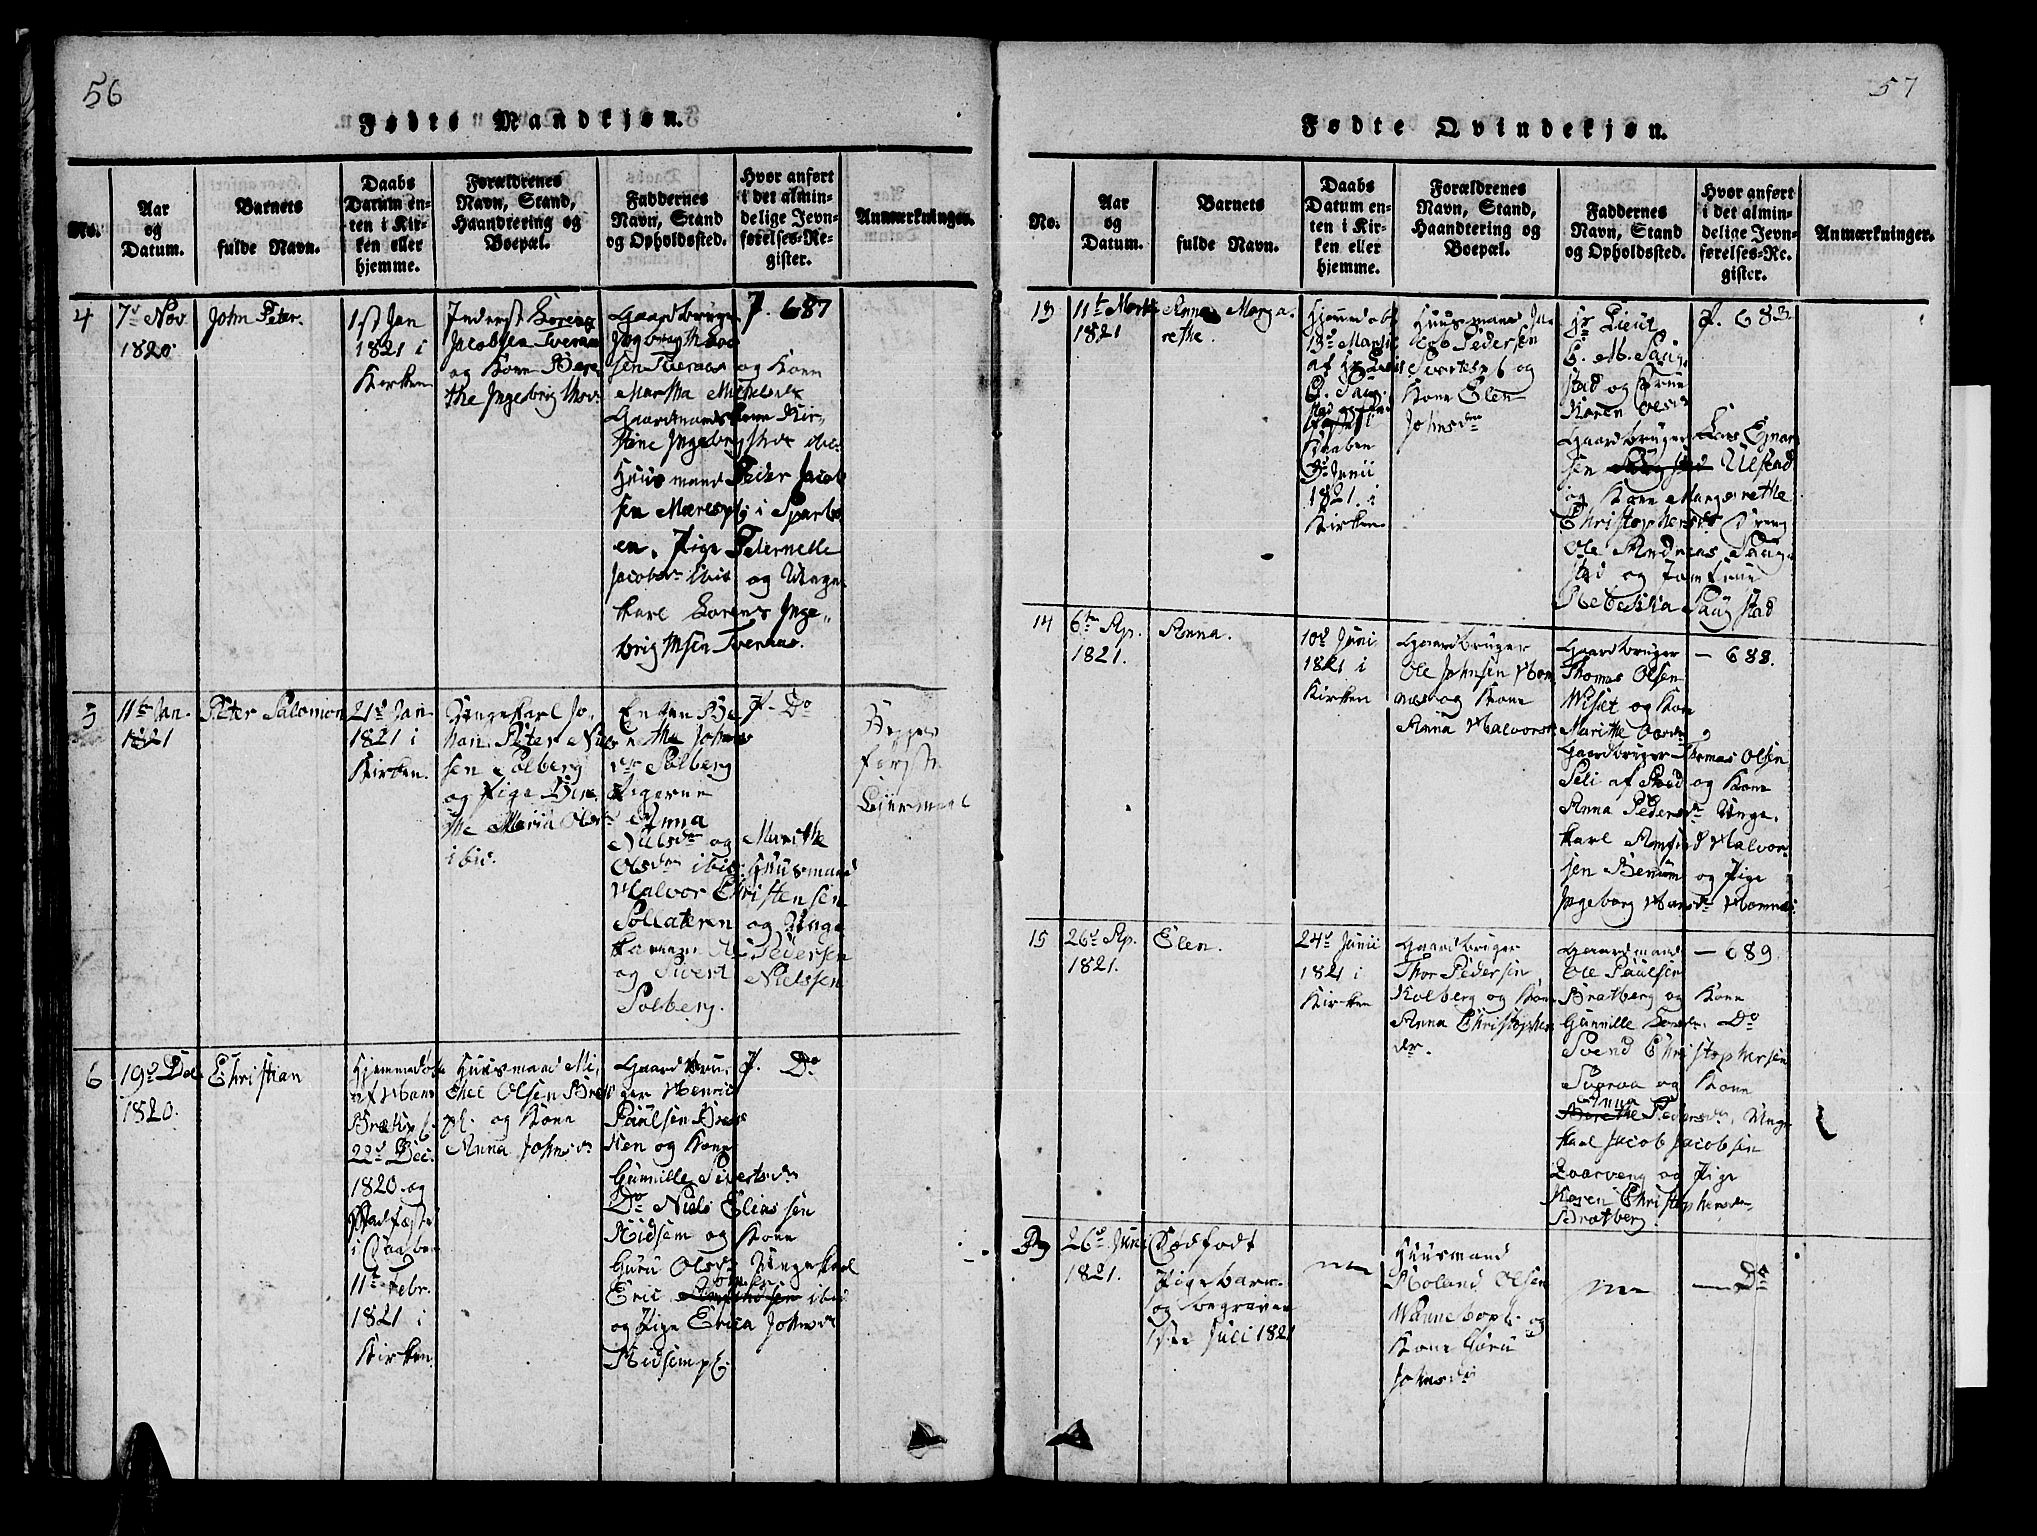 56
Fødte Mandkjøn.
No.
Aar
og
Datum.
Barnets
fulde Navn.
Daabs
Datum en-
ten i Kir-
ken eller
hjemme.
Forældrenes
Navn, Stand,
Haandtering og
Boepæl.
Faddernes
Navn, Stand
og Opholdssted.
Hvor anført
i det almin-
delige Jevn-
førelses-Re-
gister.
Anmærkninger.
4
7de Nov.
1820
John Peter.
1st Jan
1821 i
Kirken
Inderst Lorens
Jacobsen Tveraas
og Kone Bere
the Ingebrigthsdr
Gaardbruger
Ingbrigth Lor
sen Tveraas og Kone
Martha Michelsdr
Gaardmands Kone Kir-
stine Ingebrigthsdr
Huusmand Peder Jacob
sen Mærespl: i Sparbo
en, Pige Peternelle
Jacobsdr ibid og Unge
karl Lorens Inge-
brigthsen Tveraas.
P. 687
5
11te Jan.
1821
Peter Salomon
21d Jan
1821 i
Kirken.
Ungekarl Jo-
han Peter Niel
sen Solberg
og Pige Bere
the Maria Olsdr
ibid.
Enken Be
rethe Johns
dr Solberg
Pigerne
Anna
Nielsdr og Marithe
Olsdr ibid: Huusmand
Halvor Christensen
Soldateren og Unge
karlene Pedersen
og Sivert Nielssen
Solberg.
P. Do
Begges
første
Leiermaal
6
19d Dec
1820.
Christian
Hjemmedøbt
af Hans
Brækpl.
22d Dec.
1820 og
Stadfæstet
i Daaben
11te Febr.
1821 i
Kirken
Huusmand Mi-
chel Olsen Bræk
pl. og Kone
Anna Johnsdr
Gaardbru-
ger Henric
Paulsen Bræk
ken og Kone
Gunnille Sivertsdr
Do Niels Eliassen
Ridsem og Kone
Guru Olsdr Ungekarl
Eric Johnsen ibid
og Pige Erica Johnsdr
Ridsempl.
P. Do
57
Fødte Qvindekjøn.
No.
Aar
og
Datum.
Barnets
fulde Navn.
Daabs
Datum en-
ten i Kir-
ken eller
hjemme.
Forældrenes
Navn, Stand,
Haandtering og
Boepæl.
Faddernes
Navn, Stand
og Opholdssted.
Hvor anført
i det almin-
delige Jevn-
førelses-Re-
gister.
Anmærkninger.
13
11te Marts
1821
Anna Marga-
rethe.
Hjemmedøbt
13d Martii
af Hr Lieut
G. Saug-
stad og stad
fæstet i
Daaben
3d Junii
1821 i
Kirken
Huusmand Ja-
cob Pedersen
Svartespl og
Kone Elen
Johnsdr
Hr Lieut
G. M. Saug-
stad og Frue
Karen Olesdr
Gaardbruger Lars Ejnar
sen Saugstad Ulstad
og Kone Margarethe
Christophersdr Dreng
Ole Andreas Saug-
stad og Jomfrue
Rebekka Saugstad
P. 683.
14
6te Ap.
1821.
Anna.
10d Juni
1821 i
Kirken
Gaardbruger
Ole Johnsen Hom
næs og Kone
Anna Halvorsdr
Gaardbruger
Thomas Olsen
Wiset og Kone
Marithe
Gaardbruger Thomas Olsen
Seli af Snaasen og Kone
Anna Pedersdr Unge-
karl Arnfind Halvor-
sen Benum og Pige
Ingeborg Hansdr Homnæs
– 688.
15
26d Ap.
1821.
Elen.
24d Junii
1821 i
Kirken
Gaardbruger
Thor Pedersen
Kolberg og Kone
Anna Christophers
dr.
Gaardmand
Ole Paulsen
Bratberg og Kone
Gunnille Do
Svend Christophersen
og Kone
Anna
Berethe Pedersdr, Unge
karl Jacob Jacobsen
og Pige
Karen Christophersdr
Bratberg
– 689.
26d Juni
1821.
Dødfødt
Pigebarn
og begraven
1ste Juli 1821
Huusmand
Roland Olsen
Wannebopl. og
Kone Guru
Johnsdr
– Do